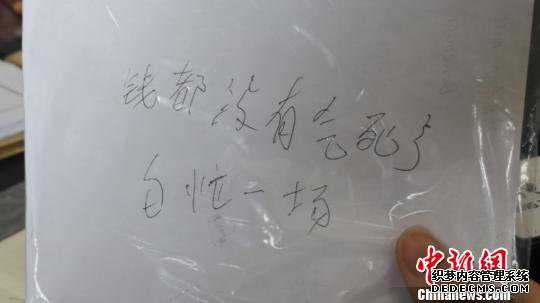 钱都没有气死了
白忙一场
中新网
织梦内容管理系统
DEDECMS.COM
Chinanews.com